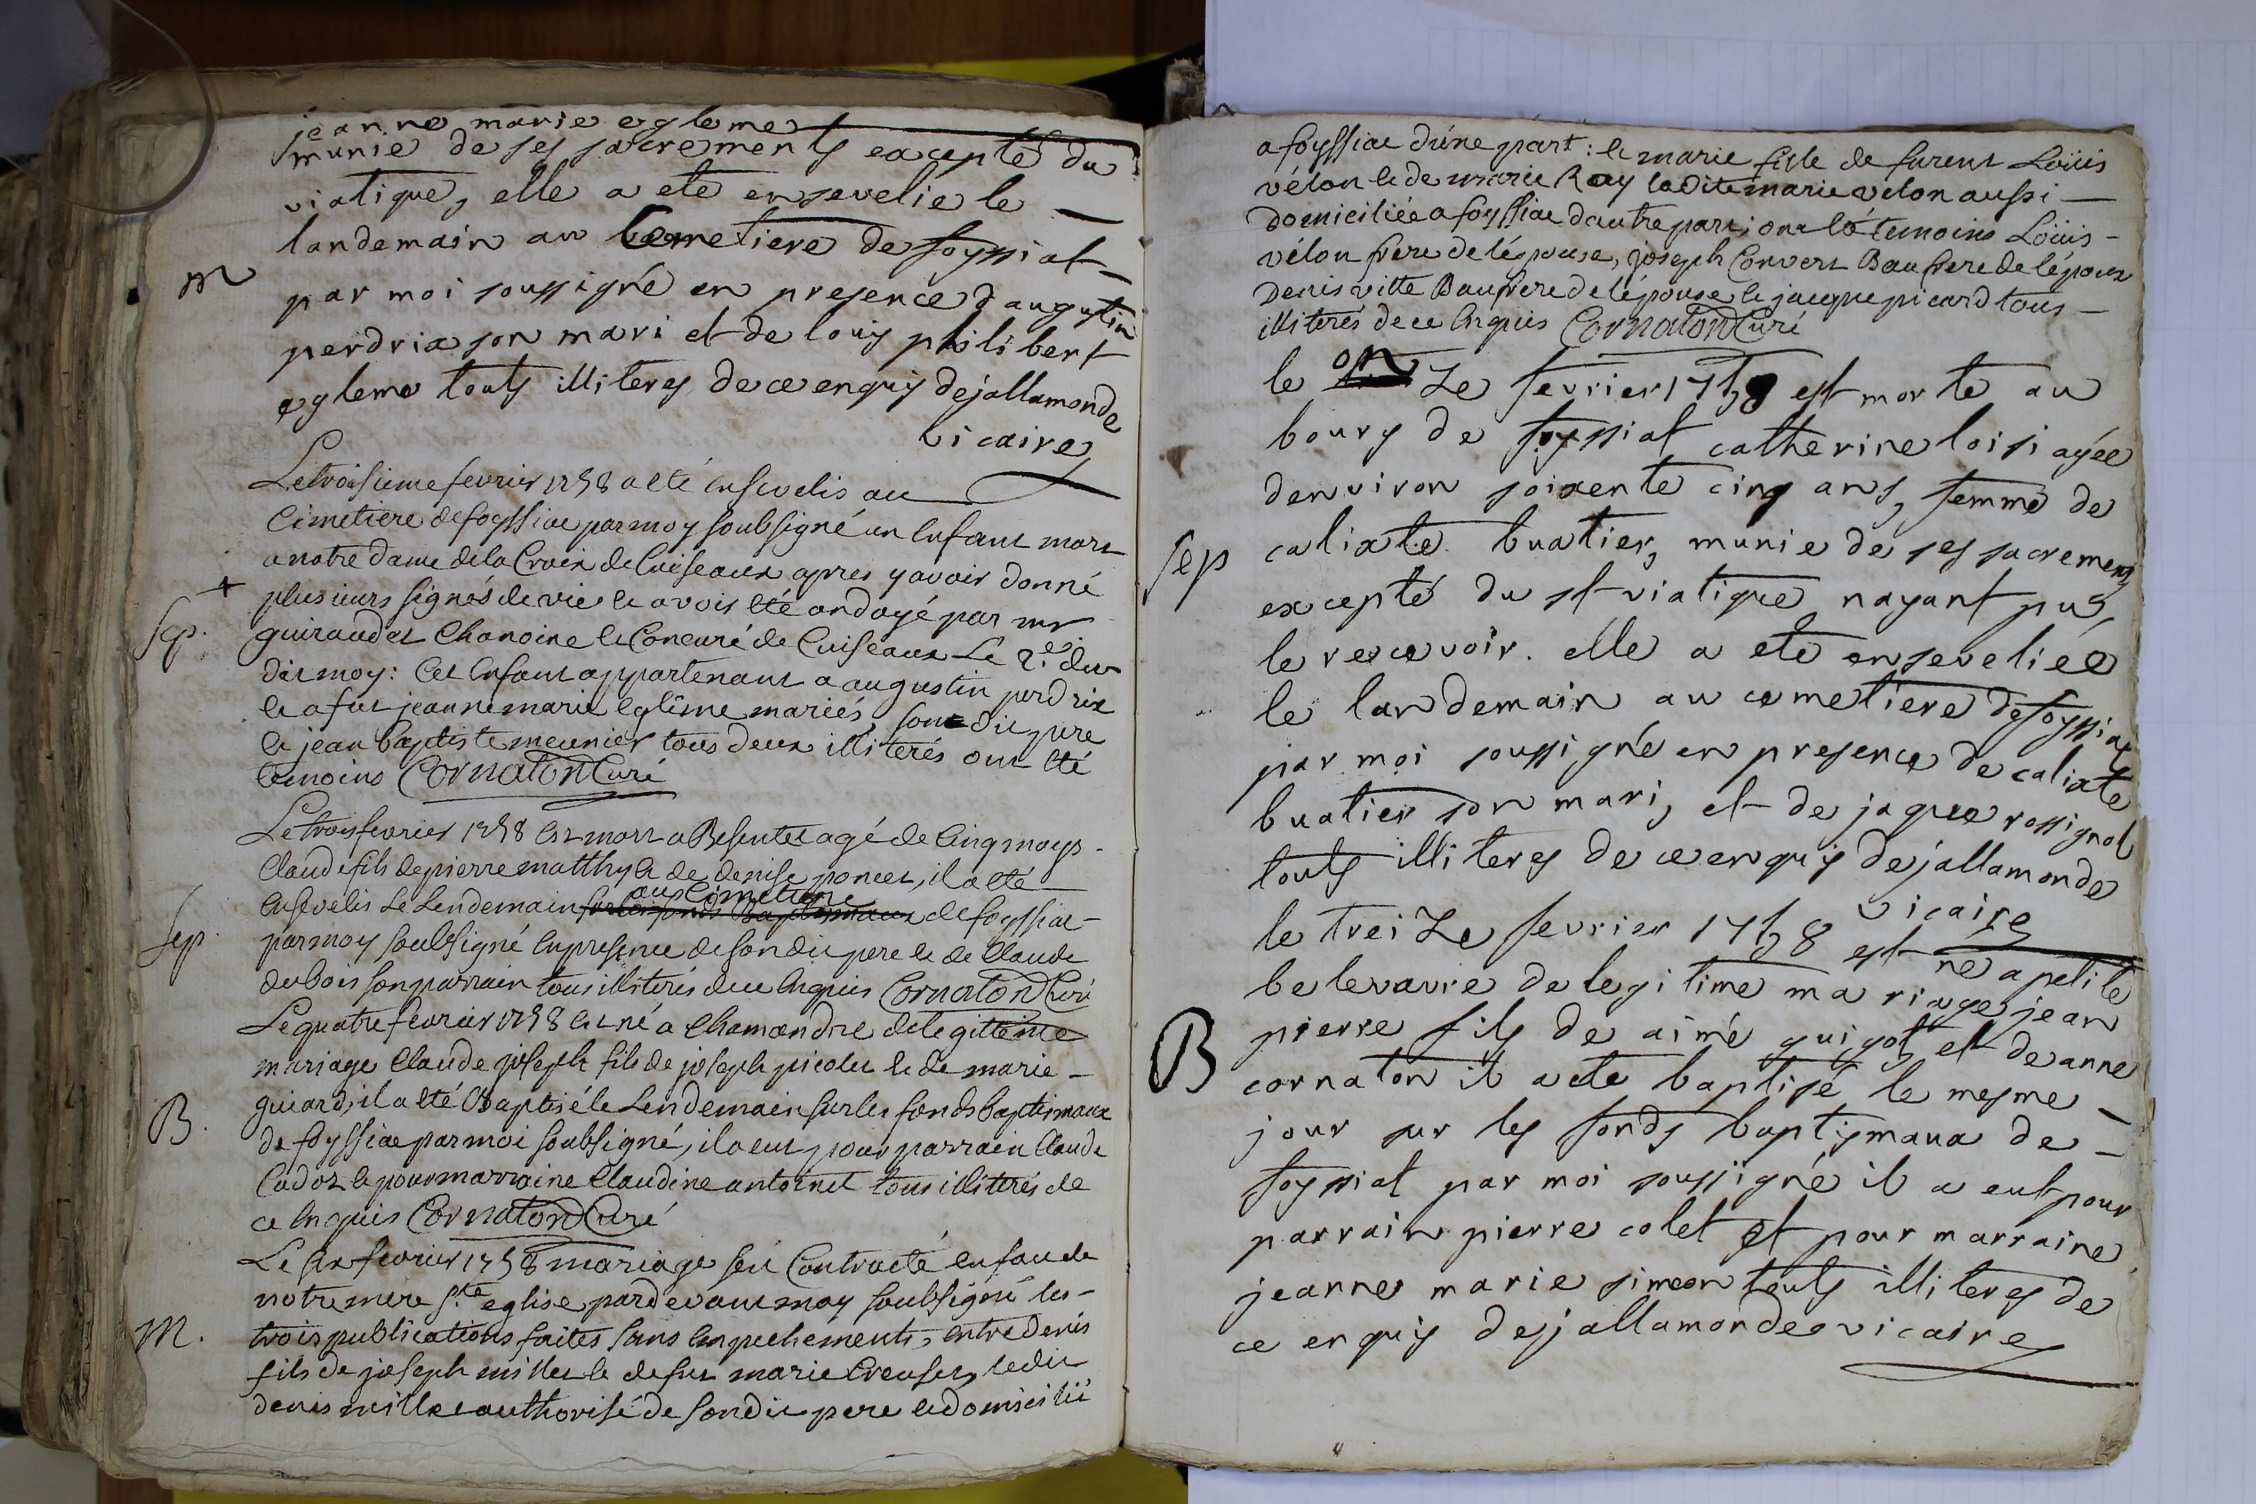 jeanne marie egleme
munie de ses sacrements excepte du
viatique, elle a ete ensevelie le
landemain au Cemetiere de foyssiat
m
par moi soussigné en presence daugustin
perdrix son mari et de louis philibert
egleme touts illiteres de ce enquis dejallamonde
vicaire
Le troisieme fevrier 1758 a eté ensevelis au
Cimetiere de foyssiac par moy soubsigné un Enfant mort
a notre dame de la Croix de Cuiseaux apres y avoir donné
+
plusieurs signes de vie et avoir eté ondoyé par mr
Sep.
guiraudet Chanoine et Concuré de Cuiseaux Le 2e du
dit moy: Cet Enfant appartenant a augustin perdrix
et a fut jeanne marie eglême mariés, son dit pere
et jean baptiste meunier tous deux illiterés ont eté
temoins Cornaton Curé
Le trois fevrier 1758 est mort a Besentet agé de Cinq moys
Claude fils de pierre matthy et de denise poncet, il a eté
aux Cimetiere
Ensevelis Le Lendemain sur les fonds Baptismaux de foyssiac
Sep.
par moy soubsigné En presence de son dit pere et de Claude
dubois son parrain tous illiterés de ce Enquis Cornaton Curé
Le quatre fevrier 1758 Est né a Chamandre de legittime
mariage Claude joseph fils de joseph picolet et de marie
guiard, il a eté Baptisé le Lendemain sur les fonds baptismaux
B.
de foyssiac par moi soubsigné, il a eut pour parrain Claude
Cadoz et pour marraine Claudine antoinet tous illiterés de
ce Enquis Cornaton Curé
Le six fevrier 1758 mariage fut Contracté en face de
notre mere Ste eglise pardevant moy soubsigné les
M.
trois publications faites sans Empechements, entre denis
fils de joseph millet et de fut marie Creuset, ledit
denis millet authorisé de son dit pere et domicilié
a foyssiac d'une part: et marie fille de furent Loüis
vélon et de marie Ray ladite marie velon aussi
domiciliée a foyssiac dautre part; ont eté temoins Loüis
vélon frere de lépouse, joseph Convert Baufrere de lépoux
Denis vitte Baufrere de lépouse et jacque picard tous
illiterés de ce Enquis Cornaton Curé
le onze fevrier 1758 est morte au
bourg de foyssiat catherine loisi agée
denviron soixente cinq ans, femme de
Sep
calixte buatier, munie de ses sacrements
excepté du st viatique nayant pus
le recevoir. elle a ete enseveliee
le landemain au cemetiere de foyssiat
par moi soussigné en presence de calixte
buatier son mari, et de jaque rossignol
touts illiteres de ce enquis dejallamonde
vicaire
le treize fevrier 1758 est né a petite
belevavre de legitime mariage jean
pierre fils de aimé guigot et de anne
B
cornaton il a ete baptisé le mesme
jour sur les fonds baptismaux de
foyssiat par moi soussigné il a eut pour
parrain pierre colet et pour marraine
jeanne marie simeon touts illiteres de
ce enquis dejallamonde vicaire